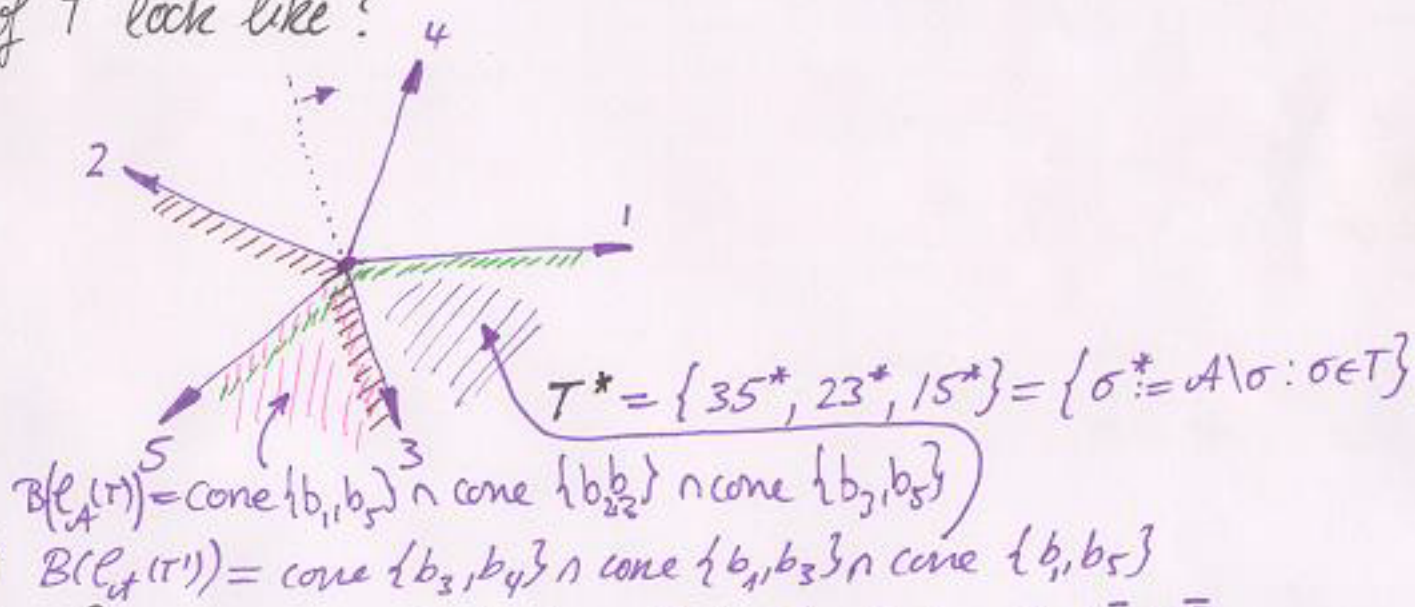 of T look like?
4
2
1
T* = {35*, 23*, 15*} = {σ* := A\σ : σ∈T}
5
3
B(ℓ_A(T)) = cone {b₁, b₅} ∩ cone {b₂, b₃} ∩ cone {b₃, b₅}
B(ℓ_A(T')) = cone {b₃, b₄} ∩ cone {b₁, b₃} ∩ cone {b₁, b₅}